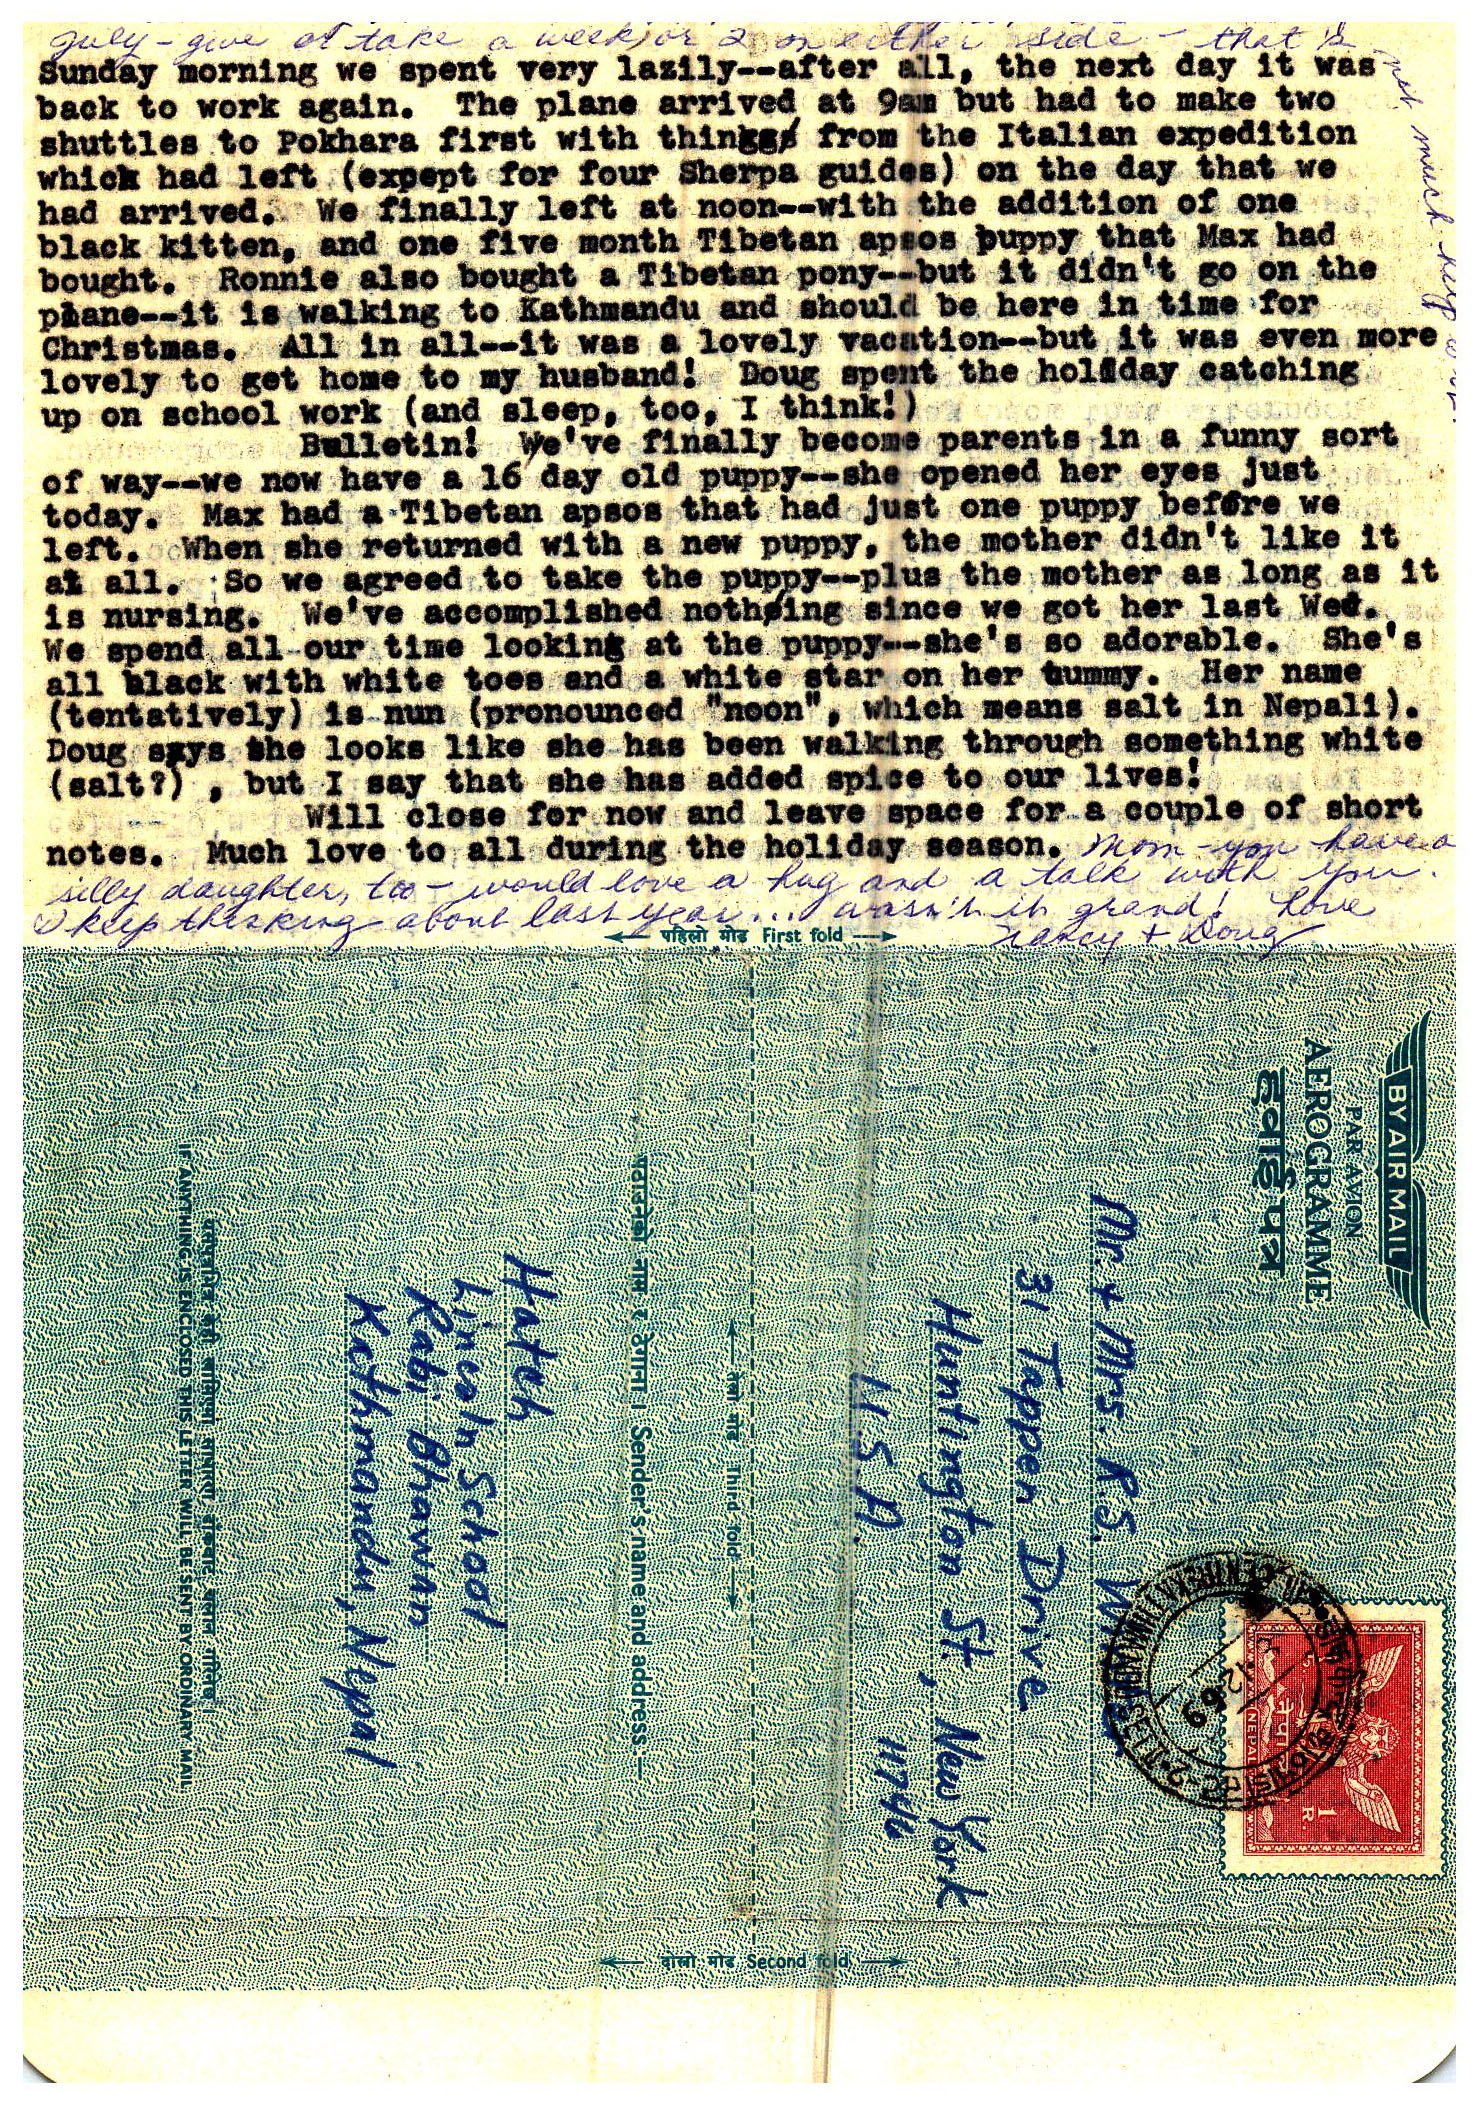 July - give or take a week or 2 on either side - that is
not much help
Sunday morning we spent very lazily--after all, the next day it was
back to work again. The plane arrived at 9am but had to make two
shuttles to Pokhara first with things from the Italian expedition
which had left (exept for four Sherpa guides) on the day that we
had arrived. We finally left at noon--with the addition of one
black kitten, and one five month Tibetan apsos puppy that Max had
bought. Ronnie also bought a Tibetan pony--but it didn't go on the
plane--it is walking to Kathmandu and should be here in time for
Christmas. All in all--it was a lovely vacation--but it was even more
lovely to get home to my husband! Doug spent the holiday catching
up on school work (and sleep, too, I think!)
Bulletin! We've finally become parents in a funny sort
of way--we now have a 16 day old puppy--she opened her eyes just
today. Max had a Tibetan apsos that had just one puppy before we
left. When she returned with a new puppy, the mother didn't like it
at all. So we agreed to take the puppy--plus the mother as long as it
is nursing. We've accomplished nothing since we got her last Wed.
We spend all our time looking at the puppy--she's so adorable. She's
all black with white toes and a white star on her tummy. Her name
(tentatively) is nun (pronounced "noon", which means salt in Nepali).
Doug says she looks like she has been walking through something white
(salt?) , but I say that she has added spice to our lives!
Will close for now and leave space for a couple of short
notes. Much love to all during the holiday season. Mom - you have a
silly daughter, too - would love a hug and a talk with you.
I keep thinking about last year... wasn't it grand! Love
Nancy + Doug
पहिलो मोड First fold
BY AIR MAIL
PAR AVION
AEROGRAMME
हवाई पत्र
Mr. + Mrs. R.S.
31 Tappen Drive
Huntington St., New York
U.S.A. 11746
नेपाल
NEPAL
1 R.
12 69
तेस्रो मोड Third fold
पठाउनेको नाम र ठेगाना । Sender's name and address:—
Hatch
Lincoln School
Rabi Bhawan
Kathmandu, Nepal
IF ANYTHING IS ENCLOSED THIS LETTER WILL BE SENT BY ORDINARY MAIL
दोस्रो मोड Second fold